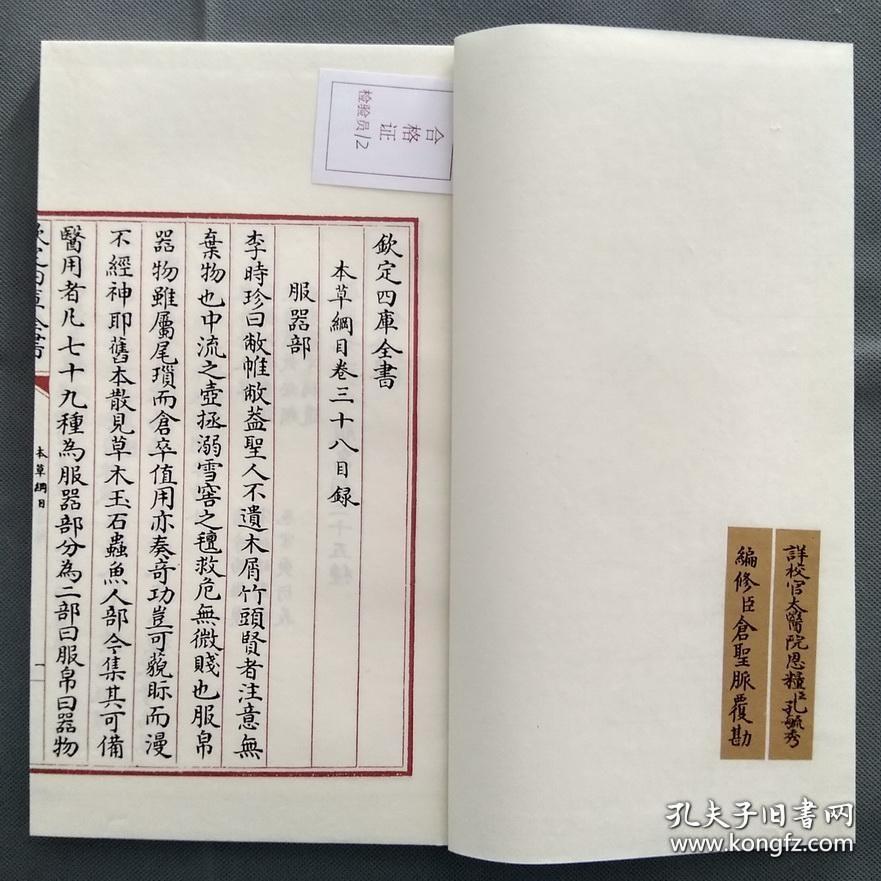 詳校官太醫院恩糧臣孔毓秀
編修臣倉聖脈覆勘
合格证
检验员12
欽定四庫全書
本草綱目卷三十八目録
服器部
李時珍曰敝帷敝蓋聖人不遺木屑竹頭賢者注意無
棄物也中流之壺拯溺雪窖之氊救危無微賤也服帛
器物雖屬尾瑣而倉卒值用亦奏奇功豈可藐眎而漫
不經神耶舊本散見草木玉石蟲魚人部今集其可備
醫用者凡七十九種為服器部分為二部曰服帛曰器物
欽定四庫全書
本草綱目
一
孔夫子旧书网
www.kongfz.com